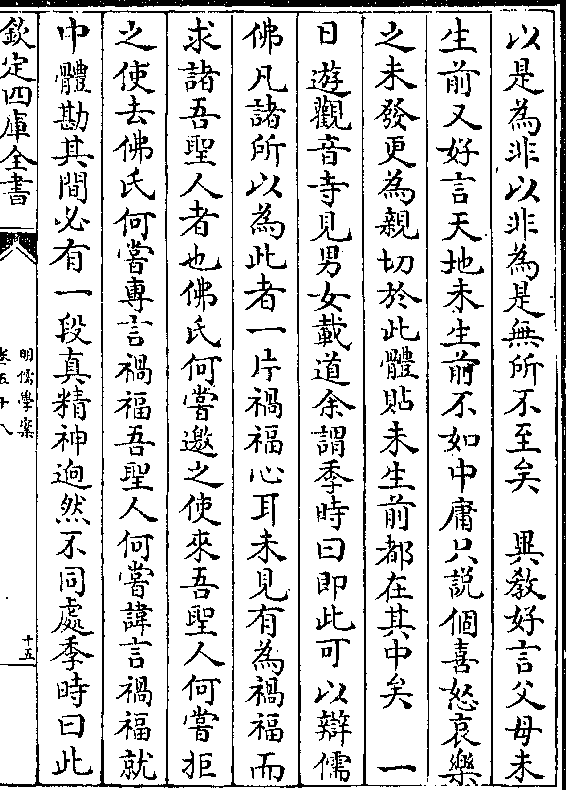 以是為非以非為是無所不至矣　異敎好言父母未
生前又好言天地未生前不如中庸只説個喜怒哀樂
之未發更為親切於此體貼未生前都在其中矣　一
日遊觀音寺見男女載道余謂季時曰即此可以辯儒
佛凡諸所以為此者一片禍福心耳未見有為禍福而
求諸吾聖人者也佛氏何嘗邀之使來吾聖人何嘗拒
之使去佛氏何嘗專言禍福吾聖人何嘗諱言禍福就
中體勘其間必有一段真精神逈然不同處季時曰此
欽定四庫全書
明儒學案
卷五十八
十五